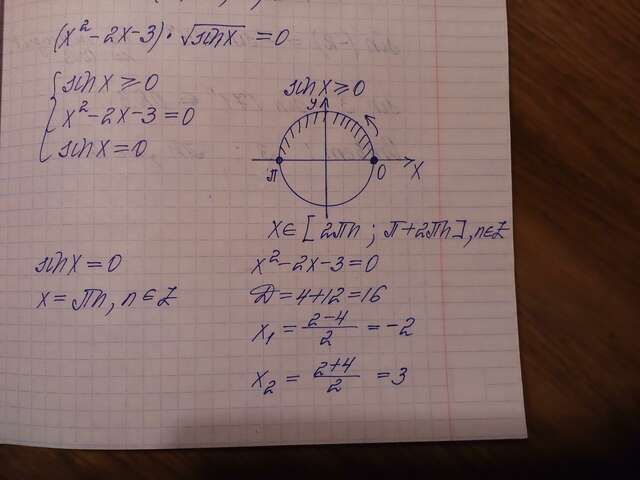 (x² - 2x - 3) · √sin x = 0
sin x ⩾ 0
x² - 2x - 3 = 0
sin x = 0
sin x ⩾ 0
y
π
0
x
x ∈ [2πn ; π + 2πn], n ∈ Z
sin x = 0
x = πn, n ∈ Z
x² - 2x - 3 = 0
D = 4 + 12 = 16
x₁ = (2-4)/2 = -2
x₂ = (2+4)/2 = 3